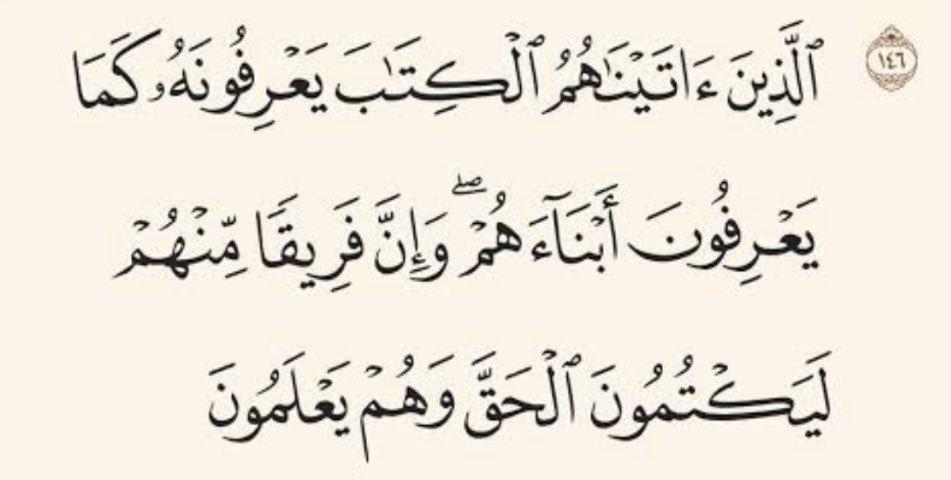 ١٤٦ ٱلَّذِينَ ءَاتَيْنَٰهُمُ ٱلْكِتَٰبَ يَعْرِفُونَهُۥ كَمَا
يَعْرِفُونَ أَبْنَآءَهُمْ ۖ وَإِنَّ فَرِيقًا مِّنْهُمْ
لَيَكْتُمُونَ ٱلْحَقَّ وَهُمْ يَعْلَمُونَ